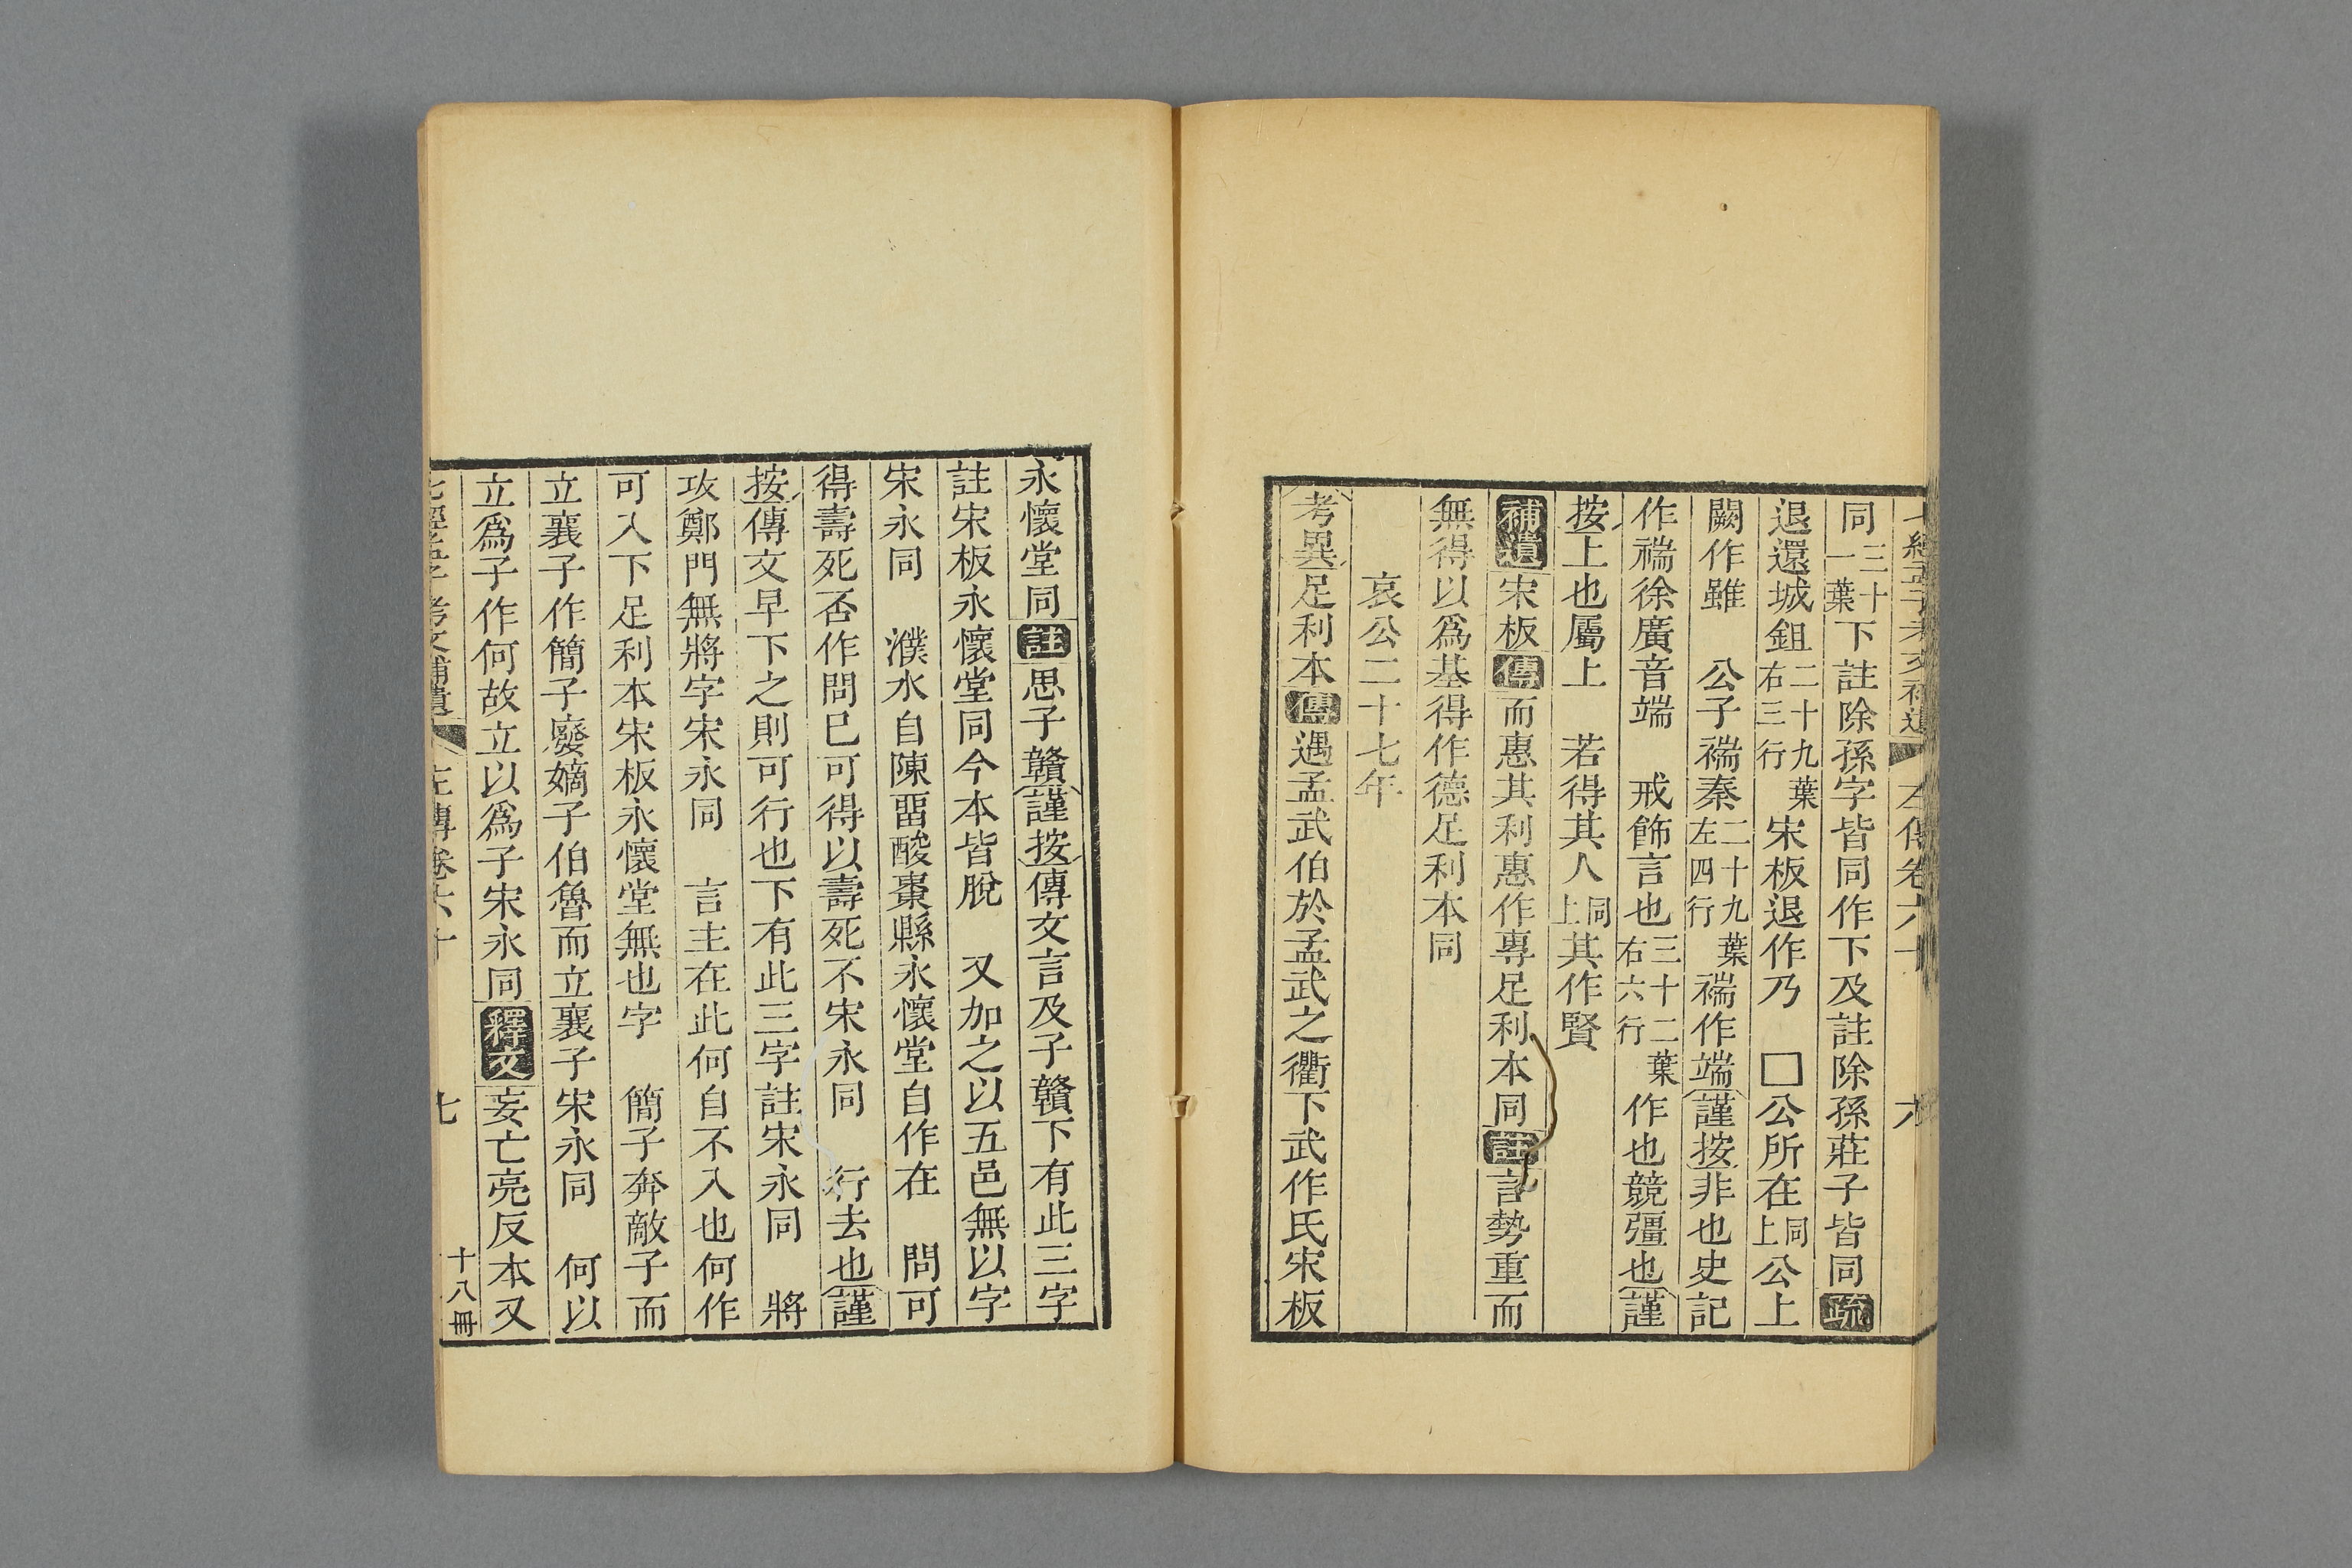 同三十一葉下註除孫字皆同作下及註除孫莊子皆同疏
退還城鉏二十九葉右三行宋板退作乃　□公所在同上公上
闕作雖　公子褍秦二十九葉左四行褍作端謹按非也史記
作褍徐廣音端　戒飾言也三十二葉右六行作也競彊也謹
按上也屬上　若得其人同上其作賢
補遺宋板傳而惠其利惠作專足利本同註言勢重而
無得以爲基得作德足利本同
哀公二十七年
考異足利本傳遇孟武伯於孟武之衢下武作氏宋板
永懷堂同註思子贛謹按傳文言及子贛下有此三字
註宋板永懷堂同今本皆脫　又加之以五邑無以字
宋永同　濮水自陳畱酸棗縣永懷堂自作在　問可
得壽死否作問已可得以壽死不宋永同　行去也謹
按傳文早下之則可行也下有此三字註宋永同　將
攻鄭門無將字宋永同　言主在此何自不入也何作
可入下足利本宋板永懷堂無也字　簡子奔敵子而
立襄子作簡子廢嫡子伯魯而立襄子宋永同　何以
立爲子作何故立以爲子宋永同釋文妄亡亮反本又
左傳卷六十　七　十八冊